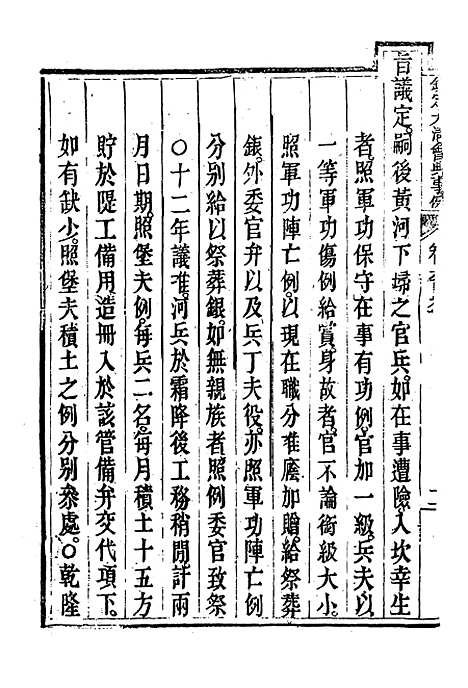 欽定大清會典事例
旨議定嗣後黃河下埽之官兵。如在事遭險。入坎幸生
者。照軍功保守在事有功例。官加一級。兵夫以
一等軍功傷例給賞。身故者。官不論銜級大小。
照軍功陣亡例。以現在職分准廕加贈。給祭葬
銀。外委官弁以及兵丁夫役。亦照軍功陣亡例
分別給以祭葬銀。如無親族者。照例委官致祭
○十二年議准。河兵於霜降後工務稍閒。計兩
月日期。照堡夫例。每兵二名。每月積土十五方
貯於隄工備用。造冊入於該管備弁交代項下。
如有缺少。照堡夫積土之例分別叅處。○乾隆